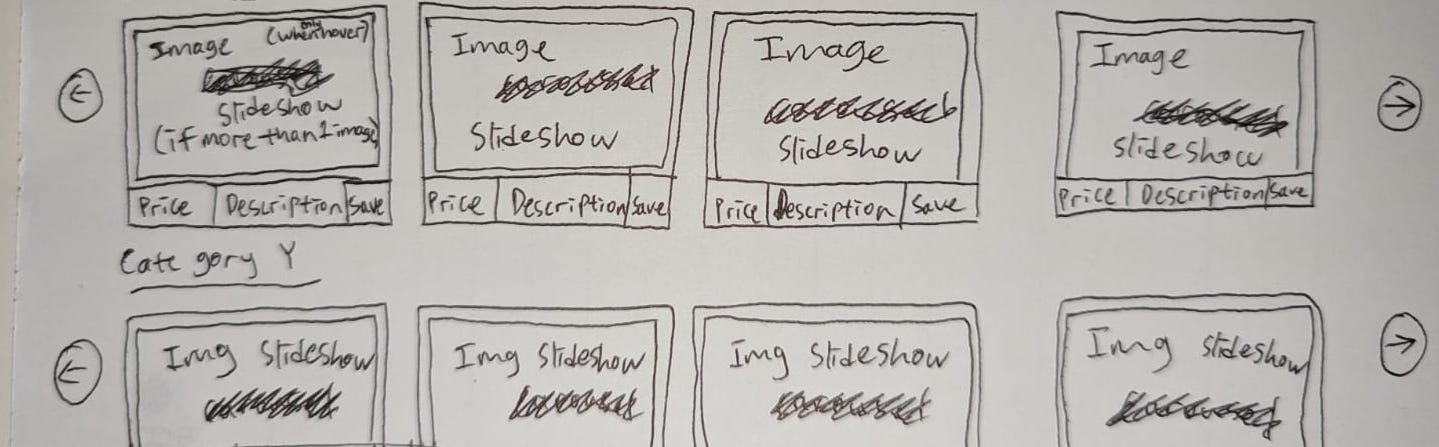 Image (when only hover)
Slideshow
(if more than 1 image)
Price Description Save
Image
Slideshow
Price Description Save
Image
Slideshow
Price Description Save
Image
Slideshow
Price Description Save
Category Y
Img Slideshow
Img Slideshow
Img Slideshow
Img Slideshow